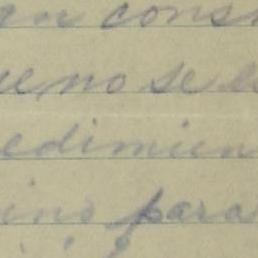 an cons
ue no se e
edimien
ino para